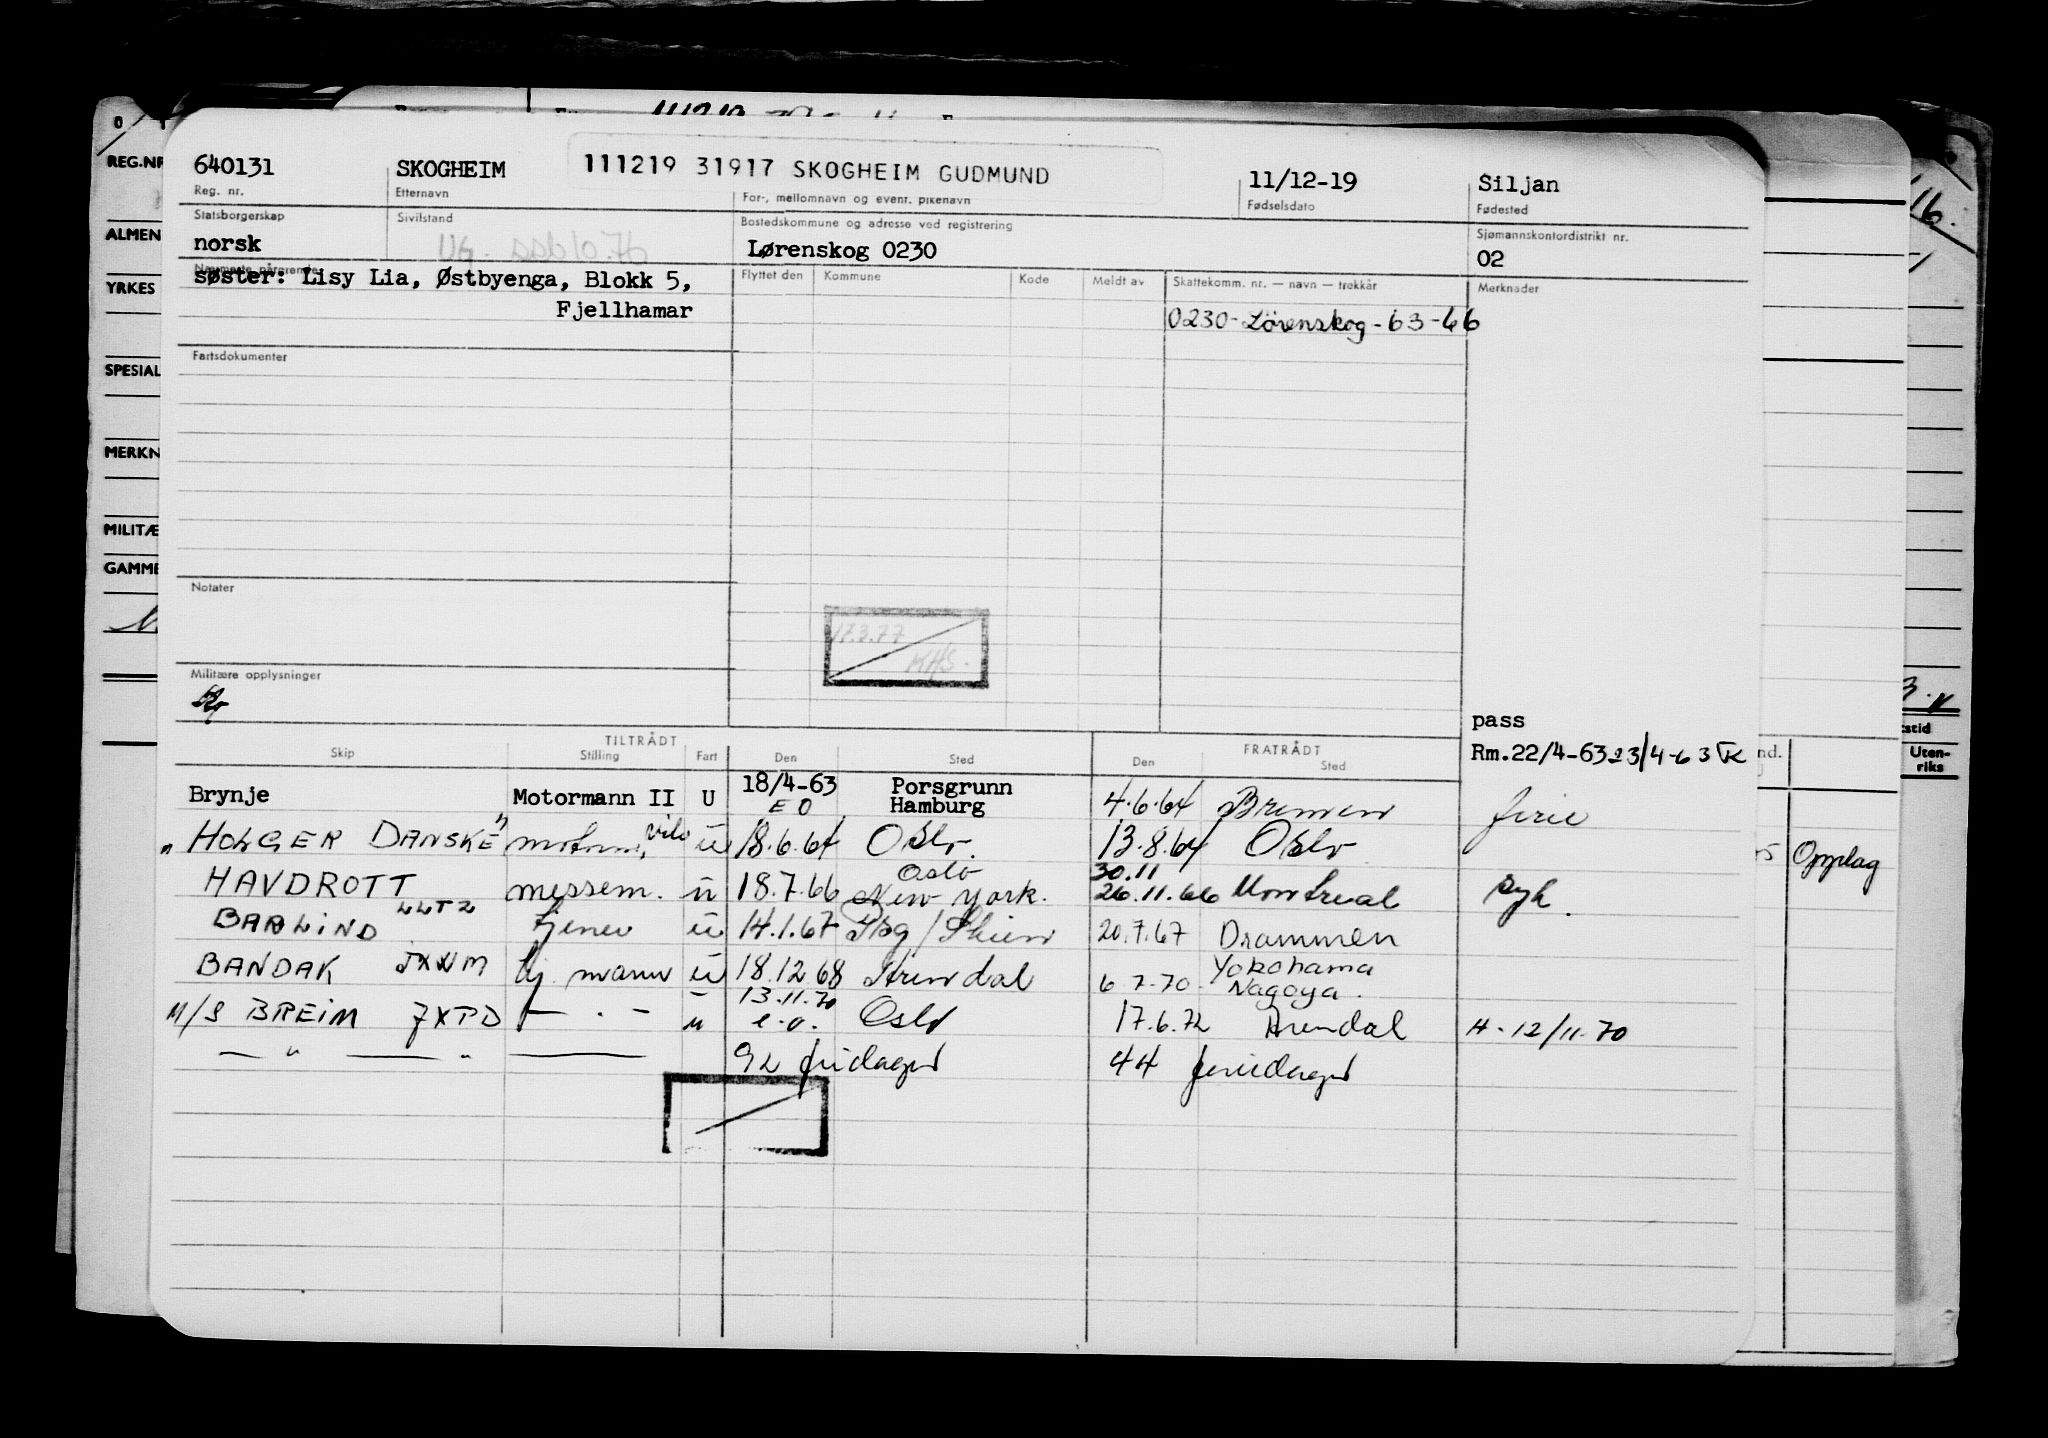 0
REG.NR
ALMEN
YRKES
SPESIAL
MERKN
MILITÆ
GAMME
640131 SKOGHEIM 111219 31917 SKOGHEIM GUDMUND 11/12-19 Siljan
Reg. nr. Etternavn For-, mellomnavn og event. pikenavn Fødselsdato Fødested
Statsborgerskap Sivilstand Bostedskommune og adresse ved registrering Sjømannskontordistrikt nr.
norsk UG. Lørenskog 0230 02
Nærmeste pårørende Flyttet den Kommune Kode Meldt av Skattekomm. nr. — navn — trekkår Merknader
søster: Lisy Lia, Østbyenga, Blokk 5,
Fjellhamar
0230-Lörenskog-63-66
Fartsdokumenter
Notater
17.3.77
KHS.
Militære opplysninger
pass
Rm.22/4-63 23/4-63
TILTRÅDT FRATRÅDT
Skip Stilling Fart Den Sted Den Sted
Brynje Motormann II U 18/4-63 Porsgrunn
EO Hamburg 4.6.64 Bremen ferie
"HOLGER DANSKE" motorm. vik ü 18.6.64 Oslo. 13.8.64 Oslo
HAVDROTT messem. ü 18.7.66 Oslo New York. 30.11 26.11.66 Montreal syk.
BARLIND LLTZ tjener ü 14.1.67 Pbg/Skien 20.7.67 Drammen
BANDAK JXWM tj. mann ü 18.12 68 Arendal 6 7-70 Yokohama Nagoya.
M/S BREIM JXPD — . — u 13.11.70 e.o. Oslo 17.6.72 Arendal H-12/11-70
— " — " — 92 fridager 44 feriedager
nd.
Oppdag
stid
Uten-
riks